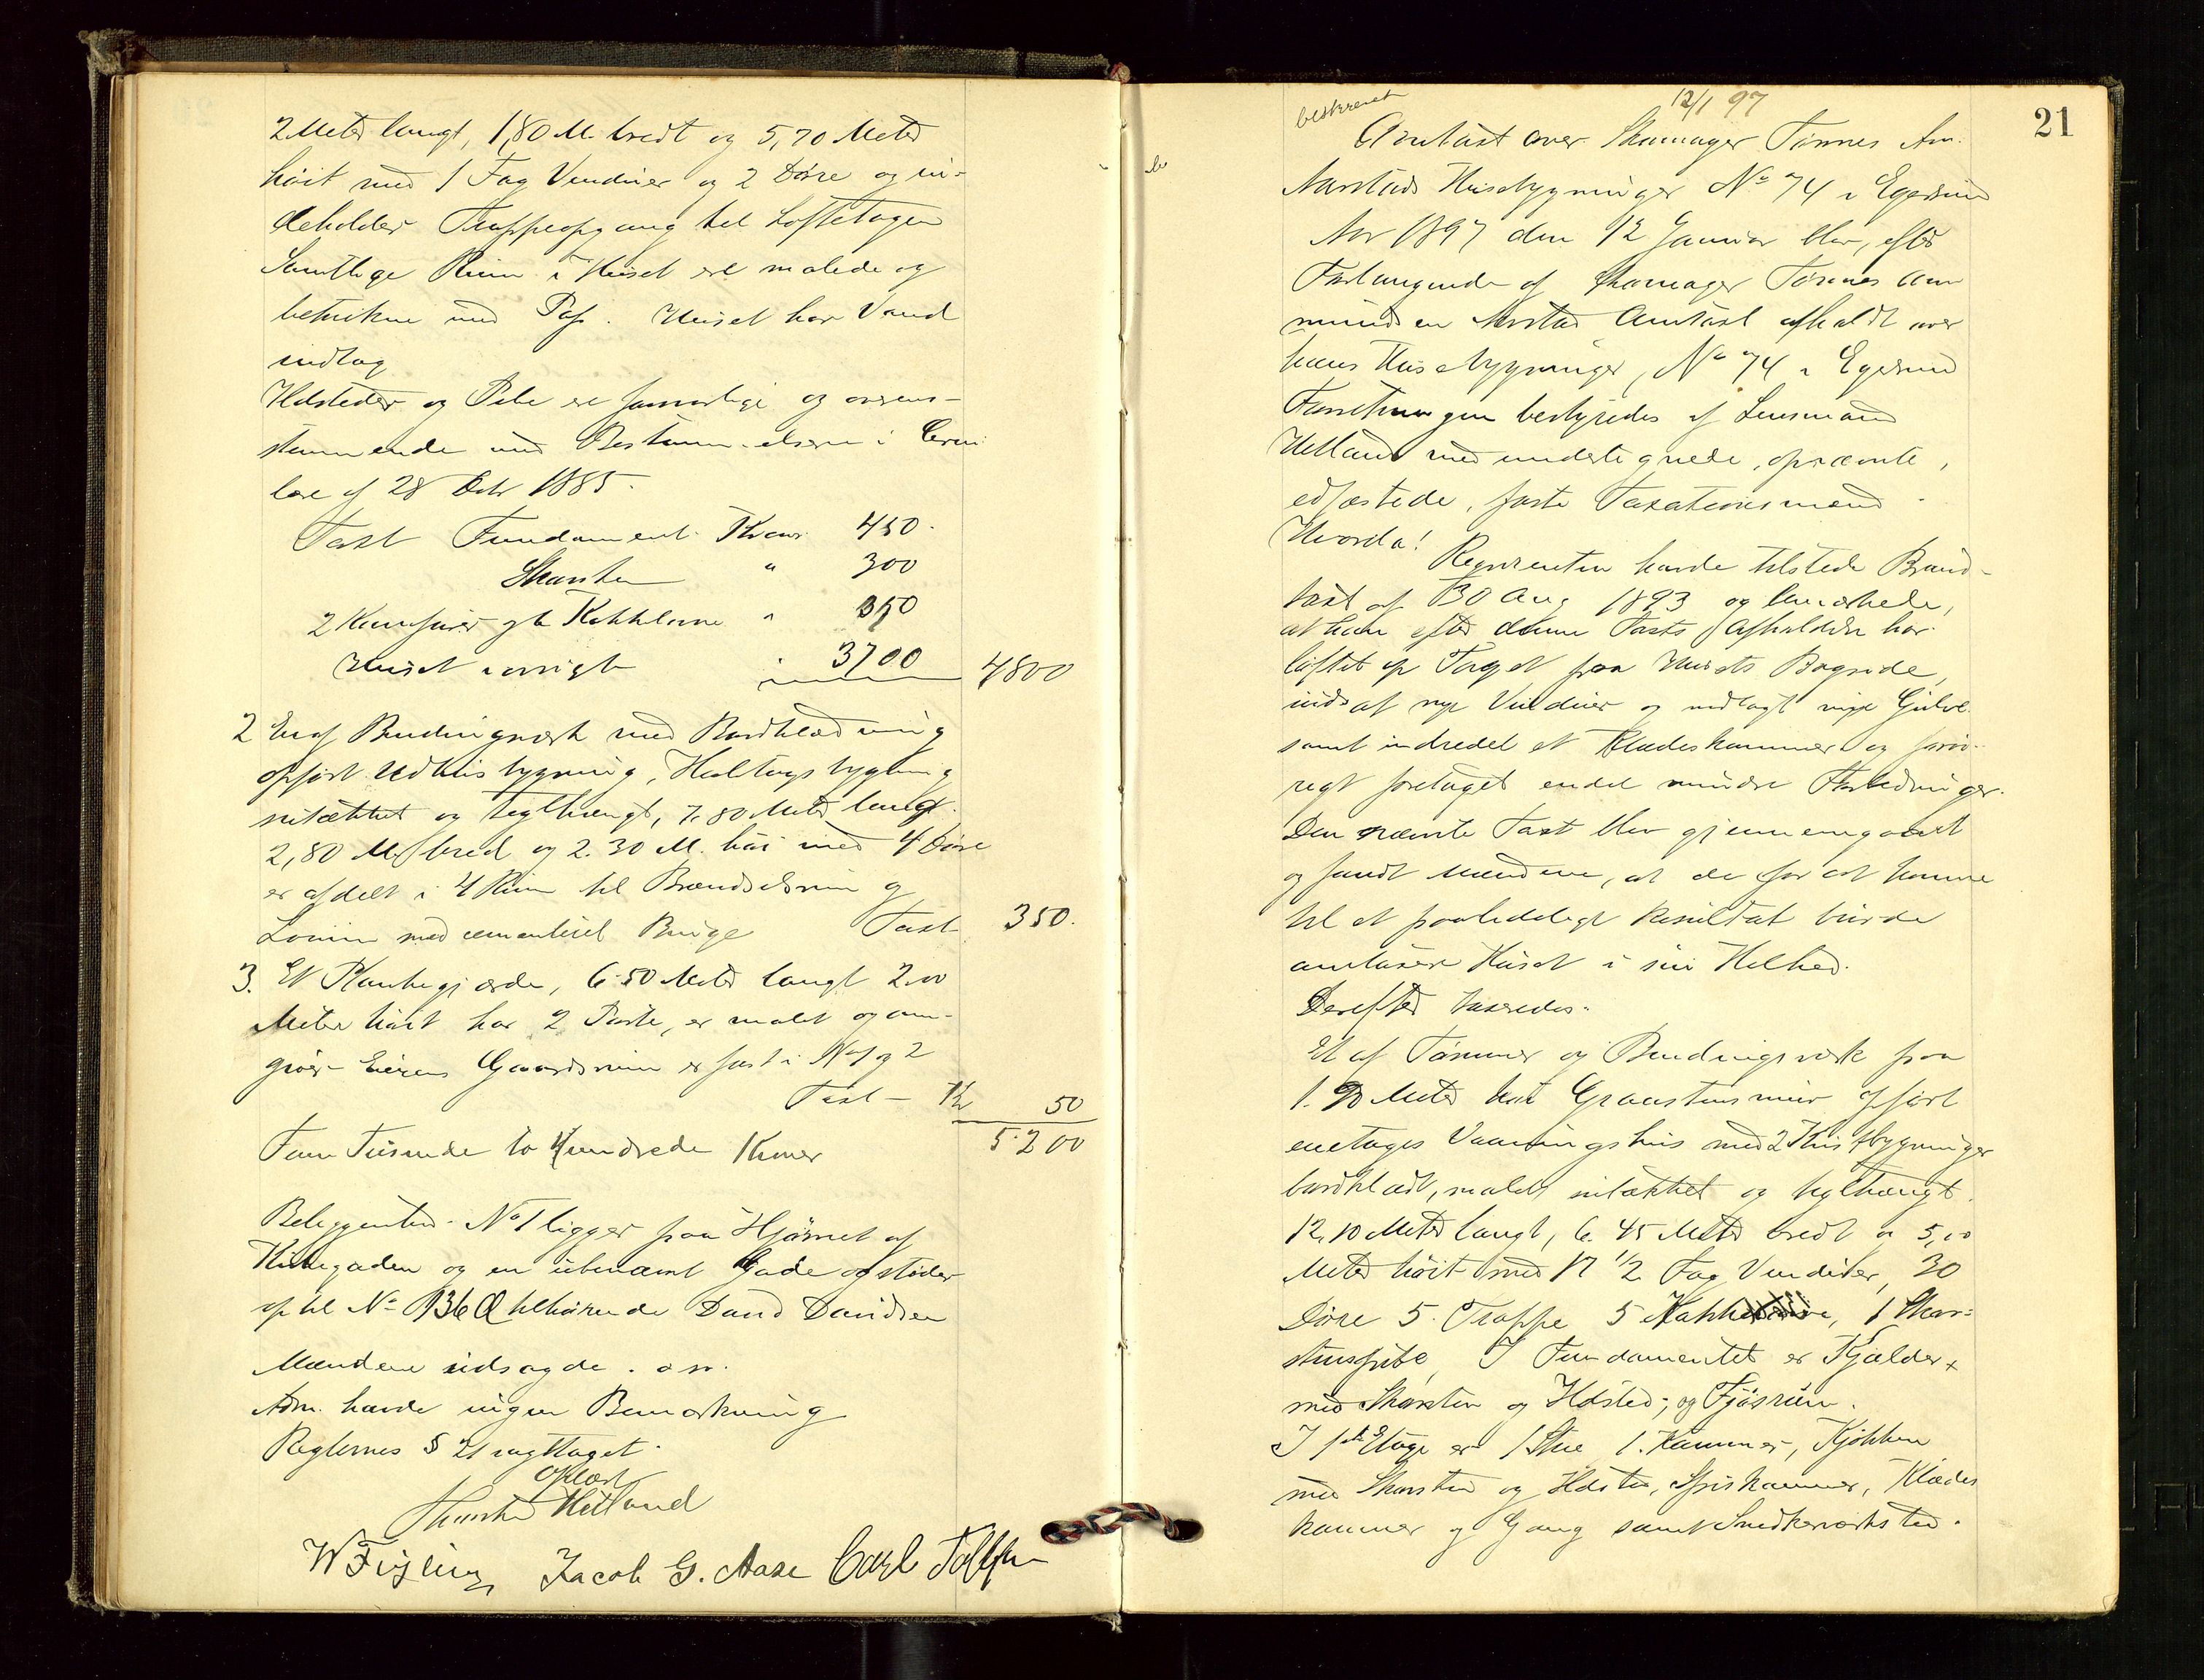 2 Meter langt, 1,80 M. bredt og 5,70 Meter
høit med 1 Fag Vinduer og 2 Døre og in-
deholder Trappeopgang til Loftetagen
Samtlige Rum i Huset ere malede og
betrukne med Pap. Huset har Vand
indlag
Ildsteder og Pibe ere forsvarlige og overens-
stemmende med Bestemmelserne i Circu
lære af 28 Octr 1885.
Taxt Fundament Kroner 450.
Skorsten " 300
2 Komfurer 2 Kakkelovne " 350
Huset iøvrigt " 3700 4800
2 En af Bindingværk med Bordklædning
opført Udhusbygning, Halvtagsbygning
nitækket og teglhængt, 7,80 Meter lang
2,80 M. bred og 2.30 M. høi med 4 Døre
er afdelt i 4 Rum til Brændselsrum og
med cementeret Binge Taxt 350.
3. Et Plankegjærde, 6.50 Meter langt 2.00
Meter høit har 2 Porte, er malet og om-
giver Eierens Gaardsrum er fast i No 1 og 2
Taxt - Kr 50
Fem Tusinde to Hundrede Kroner 5200
Beliggenhed. No 1 ligger paa Hjørnet af
Kirkegaden og en ubenævnt Gade og støder
op til No 136 a tilhørende David Davidsen
Mændene udsagde. o s v.
Adm. havde ingen Bemærkning
Reglernes § 21 iagttaget.
Oplæst
Hetland
W Feyling Jacob G. Aase Carl Tollefsen
beskrevet 12/1 97
21
Omtaxt over Skomager Tønnes Am.
Aarstads Husebygninger No 74 i Egersund
Aar 1897 den 12 Januar blev, efter
Forlangende af Skomager Tønnes Aam
mundsen Aarstad Omtaxt afholdt over
hans Husebygninger, No 74 i Egersund
Forretningen bestyredes af Lensmand
Hetland med undertegnede, opnævnte,
edfæstede, faste Taxationsmænd.
Hvorda!
Rekvirenten havde tilstede Brand-
taxt af 30 Aug 1893 og bemærkede,
at han efter denne Taxts Afholdelse har
løftet op Taget paa Husets Bagside,
indsat nye Vinduer og indlagt nye Gulve
samt indredet et Klædeskammer og forøv-
rigt foretaget endel mindre Forbedringer.
Den nævnte Taxt blev gjennemgaaet
og fandt Mændene, at de for at komme
til et paalideligt Resultat burde
omtaxere Huset i sin Helhed.
Derefter taxeredes:
Et af Tømmer og Bindingsværk paa
1.90 Meter høi Graastensmur opført
enetages Vaaningshus med 2 Kvistbygninger
bordklædt, malet nitækket og teglhængt
12,10 Meter langt, 6.45 Meter bredt og 5,00
Meter høit med 17 1/2 Fag Vinduer, 30
Døre 5 Trappe 5 Kakkelovne, 1 Skor-
stenspibe, I Fundamentet er Kjælder x
med Skorsten og Ildsted; og Fjøsrum.
I 1ste Etage er 1 Stue 1 Kammer, Kjøkken
med Skorsten og Ildsted, Spiskammer, Klædes
kammer og Gang samt Snedkerværksted.